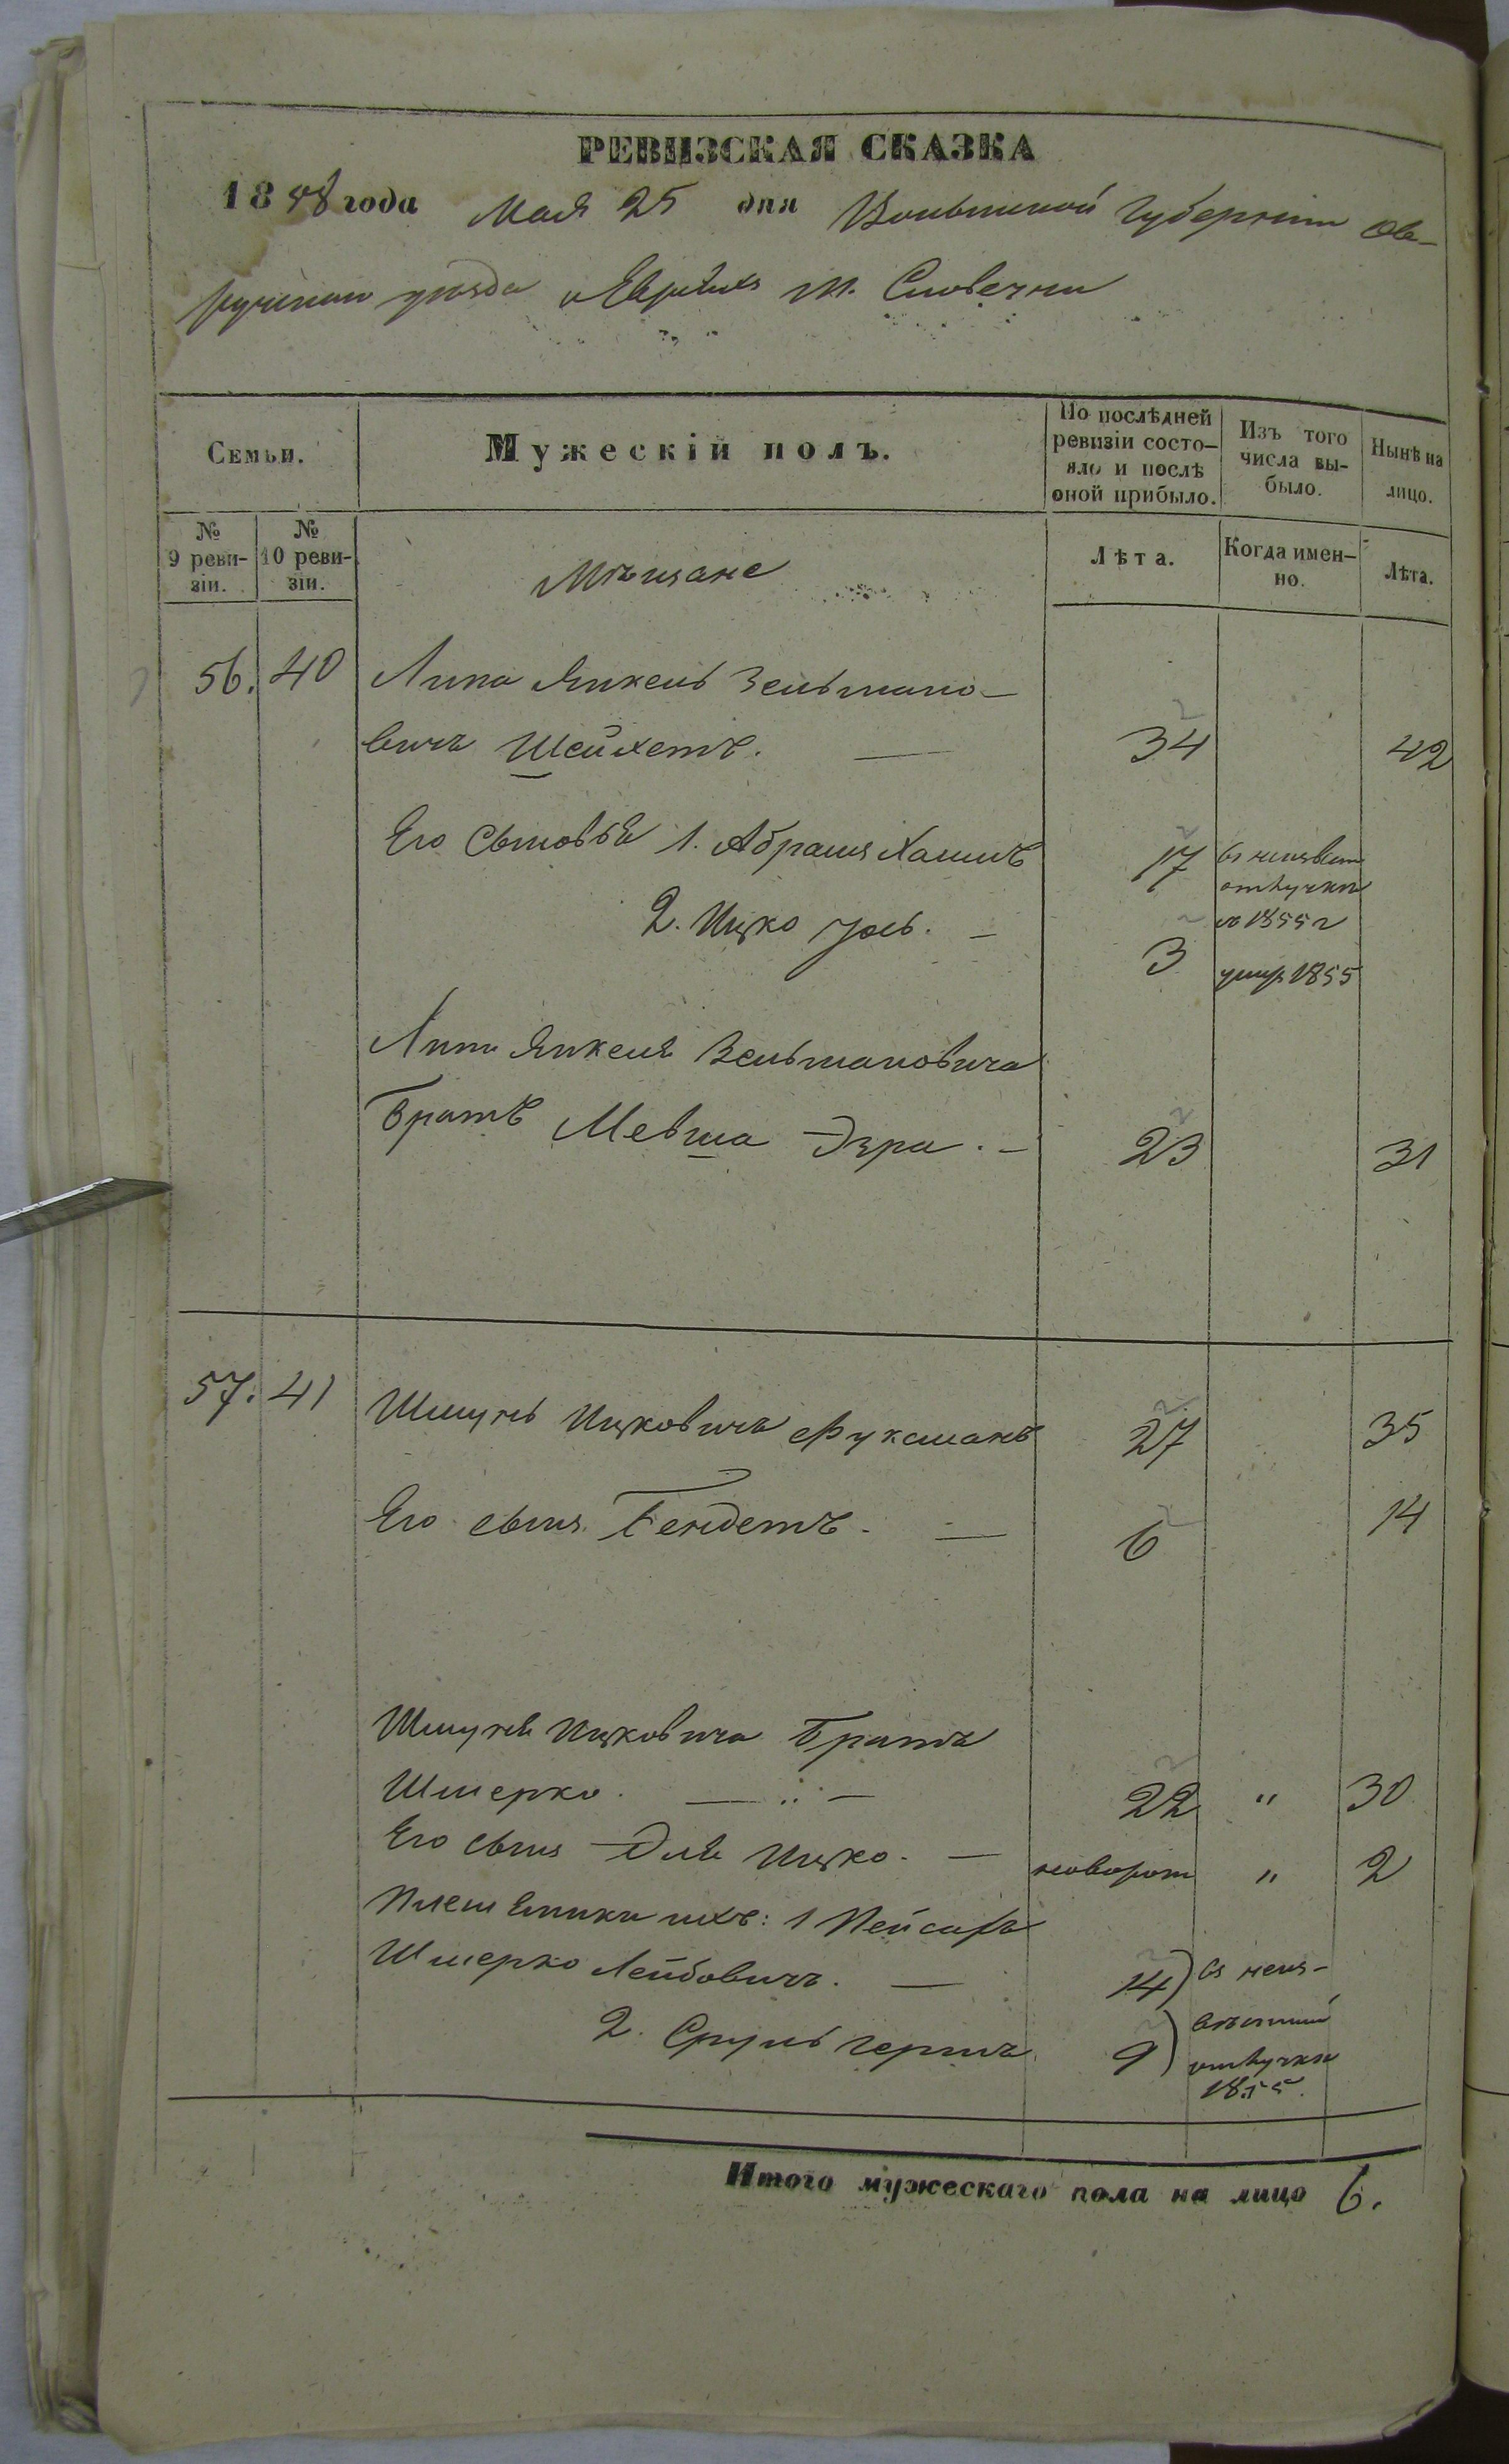 РЕВИЗСКАЯ СКАЗКА
1858 года Мая 25 дня Волынской Губерніи Ов-
ручскаго уѣзда о Евреяхъ м. Словечни
Семьи.
Мужескій полъ.
По послѣдней ревизіи состо-яло и послѣ оной прибыло.
Изъ того числа вы-было.
Нынѣ на лицо.
№ 9 реви-зіи.
№ 10 реви-зіи.
Мѣщане
Лѣта.
Когда имен-но.
Лѣта.
56. 40 Липа Янкель Зельмано-
вичъ Шейхетъ. — 34 42
Его Сыновья 1. Абрамъ Хаимъ 17 въ неизвѣст
отлучкѣ
съ 1855 г
2. Ицко Юль. — 3 умер 1855
Липы Янкеля Зельмановича
братъ Мевша Эзра. — 23 31
57. 41 Шмуль Ицковичъ Фуксманъ 27 35
Его сынъ Бендетъ. — 6 14
Шмуля Ицковича братъ
Шмерко. — 22 " 30
Его сынъ Эля Ицко. — новорож " 2
Племянники ихъ: 1 Пейсахъ
Шмерко Лейбовичъ. — 14) въ неиз-
2. Сруль Гершъ 9) вѣстной
отлучкѣ
1855.
Итого мужескаго пола на лицо 6.